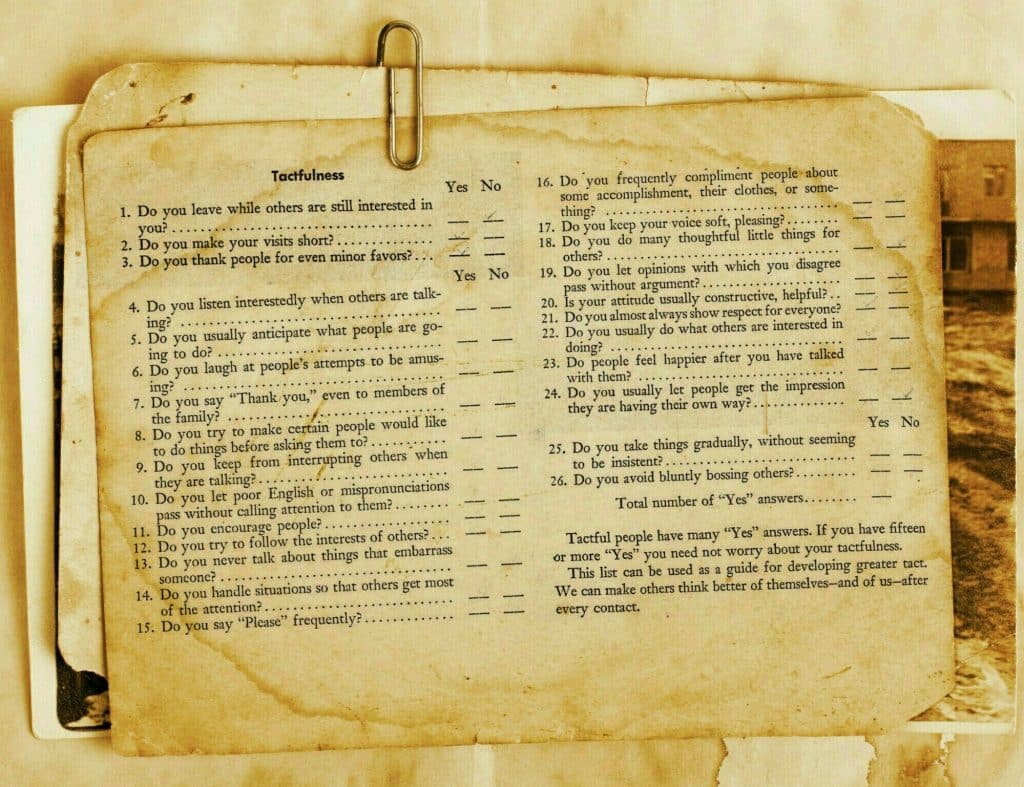 Tactfulness
Yes No
1. Do you leave while others are still interested in
you? ..................................
2. Do you make your visits short? .............
3. Do you thank people for even minor favors? ...
Yes No
4. Do you listen interestedly when others are talk-
ing? ..................................
5. Do you usually anticipate what people are go-
ing to do? .............................
6. Do you laugh at people's attempts to be amus-
ing? ..................................
7. Do you say "Thank you," even to members of
the family? ............................
8. Do you try to make certain people would like
to do things before asking them to? ..........
9. Do you keep from interrupting others when
they are talking? .........................
10. Do you let poor English or mispronunciations
pass without calling attention to them? ........
11. Do you encourage people? ..................
12. Do you try to follow the interests of others? ...
13. Do you never talk about things that embarrass
someone? ..............................
14. Do you handle situations so that others get most
of the attention? .........................
15. Do you say "Please" frequently? .............
16. Do you frequently compliment people about
some accomplishment, their clothes, or some-
thing? ................................
17. Do you keep your voice soft, pleasing? ........
18. Do you do many thoughtful little things for
others? ................................
19. Do you let opinions with which you disagree
pass without argument? ...................
20. Is your attitude usually constructive, helpful? ..
21. Do you almost always show respect for everyone?
22. Do you usually do what others are interested in
doing? ................................
23. Do people feel happier after you have talked
with them? ............................
24. Do you usually let people get the impression
they are having their own way? .............
Yes No
25. Do you take things gradually, without seeming
to be insistent? ..........................
26. Do you avoid bluntly bossing others? .........
Total number of "Yes" answers ........
Tactful people have many "Yes" answers. If you have fifteen
or more "Yes" you need not worry about your tactfulness.
This list can be used as a guide for developing greater tact.
We can make others think better of themselves—and of us—after
every contact.